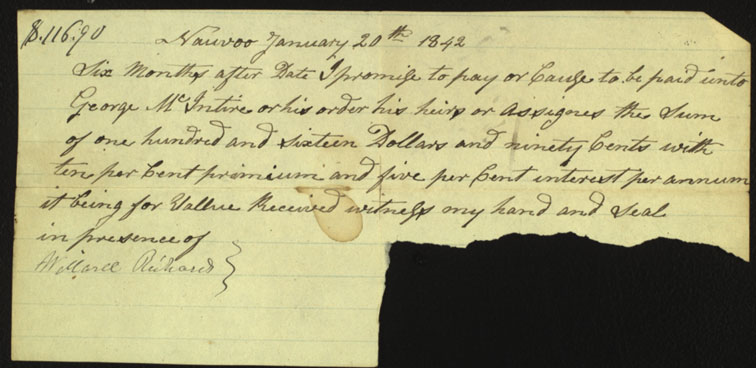 $.116.90 Nauvoo January 20th 1842
Six Months after Date I promise to pay or Cause to be paid unto
George McIntire or his order his heirs or assignes the Sum
of one hundred and sixteen Dollars and ninety Cents with
ten per Cent primium and five per Cent interest per annum
it being for Vallue Received witness my hand and Seal
in presence of
Willard Richards }